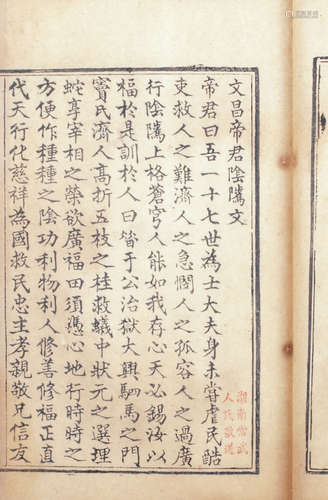 文昌帝君陰騭文
帝君曰吾一十七世為士大夫身未嘗虐民酷
吏救人之難濟人之急憫人之孤容人之過廣
行陰騭上格蒼穹人能如我存心天必錫汝以
福於是訓於人曰昔于公治獄大興駟馬之門
竇氏濟人高折五枝之桂救蟻中狀元之選埋
蛇享宰相之榮欲廣福田須憑心地行時時之
方便作種種之陰功利物利人修善修福正直
代天行化慈祥為國救民忠主孝親敬兄信友
湖南常武
人氏敬送